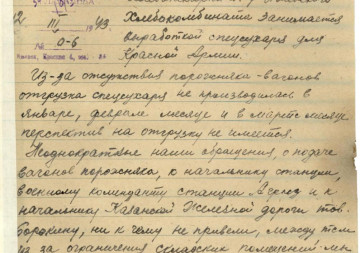 Хлебокомбинат занимается
12 III 1943.
выработкой спецсухаря для
№ 0-6
Красной Армии.
Из-за отсутствия порожняка-вагонов
отгрузка спецсухаря не производилась в
январе, феврале месяце и в марте месяце
перспектив на отгрузку не имеется.
Неоднократные наши обращения, с подаче
вагонов порожняка, к начальнику станции,
военному коменданту станции и к
начальнику Казанской Железной дороги тов.
ни к чему не привели, между тем
из за ограничения складских помещений мы